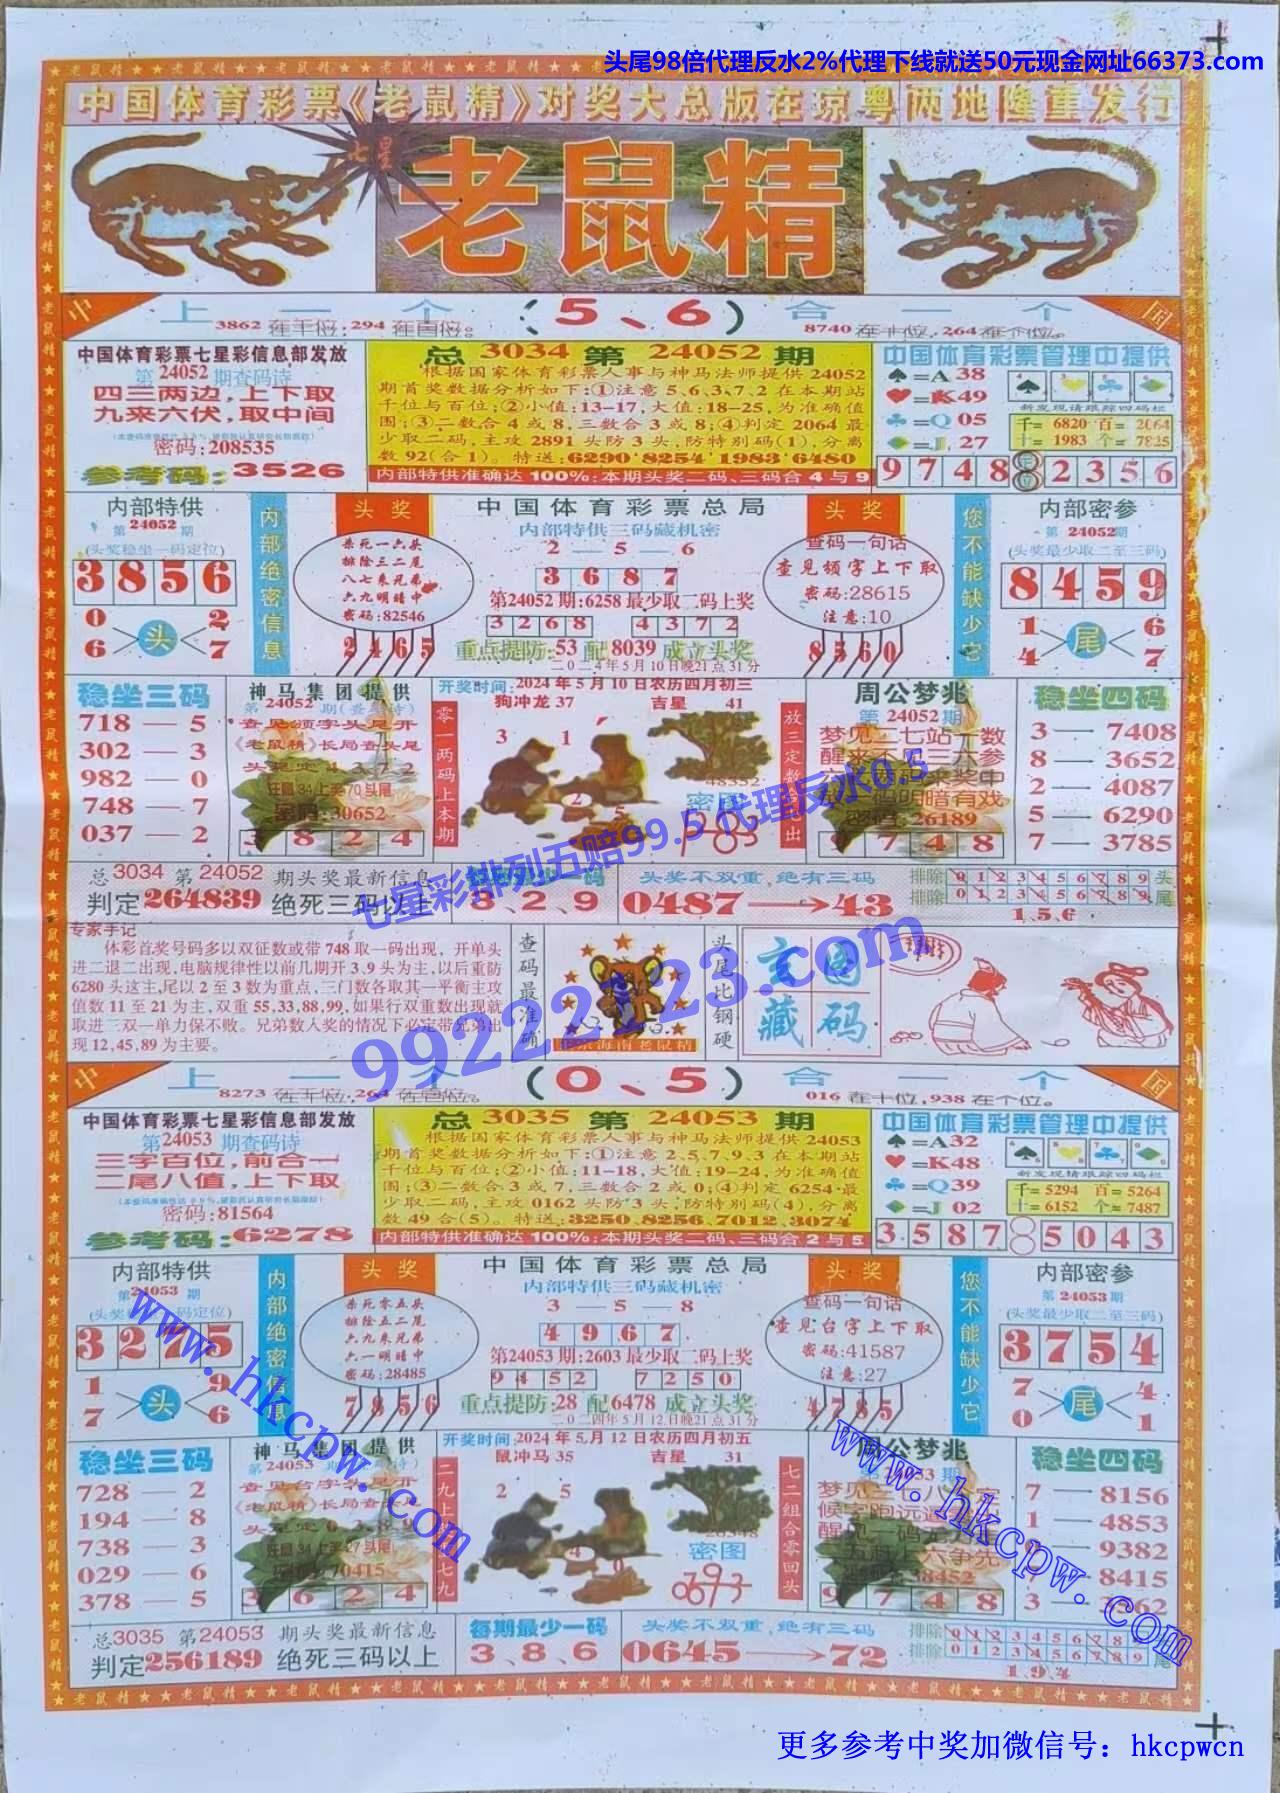 头尾98倍代理反水2%代理下线就送50元现金网址66373.com
中国体育彩票《老鼠精》对奖大总版在琼粤两地隆重发行
七星
老鼠精
中
上一个
(5、6)
合一个
国
3862在千位;294在百位。
8740在十位,264在个位。
中国体育彩票七星彩信息部发放
第24052期查码诗
四三两边,上下取
九来六伏,取中间
密码:208535
参考码:3526
总3034第24052期
根据国家体育彩票人事与神马法师提供24052
期首奖数据分析如下:①注意5、6、3、7、2在本期站
千位与百位;②小值:13-17,大值:18-25,为准确值
围;③二数合4或8,三数合3或8;④判定2064最
少取二码,主攻2891头防3头,防特别码(1),分离
数92(合1)。特送:6290·8254·1983·6480
内部特供准确达100%:本期头奖二码、三码合4与9
中国体育彩票管理中提供
♠=A 38
♥=K49
♣=Q 05
♦=J 27
新发现请跟踪四码栏
千=6820 百=2064
十=1983 个=7825
9748 定位 2356
内部特供
第24052期
(头奖稳坐一码定位)
3856
0 2
头
6 7
内部绝密信息
头奖
杀死一六头
排除三二尾
八七来兄弟
六九明暗中
密码:82546
2465
中国体育彩票总局
内部特供三码藏机密
2—5—6
3687
第24052期:6258最少取二码上奖
3268 4372
重点提防:53配8039成立头奖
二0二4年5月10日晚21点31分
头奖
查码一句话
查见颁字上下取
密码:28615
注意:10
8560
您不能缺少它
内部密参
第24052期
(头奖最少取二至三码)
8459
1 6
尾
4 7
稳坐三码
718—5
302—3
982—0
748—7
037—2
神马集团提供
第24052期
查见颁字头尾开
《老鼠精》长局查头尾
头尾定4 3 7 2
狂属34上奖70头尾
密码:30652
3824
开奖时间:2024年5月10日农历四月初三
狗冲龙37 吉星 41
零一两码上本期
3 1
2
5
48352
密图
放三定数
出
周公梦兆
第24052期
梦见二七站一数
密码:26189
9748
稳坐四码
3—7408
8—3652
2—4087
5—6290
7—3785
总3034第24052期头奖最新信息
判定264839绝死三码以上
8、2、9
头奖不双重,绝有三码
0487→43
排除0123456789头
排除0123456789尾
1 5 6
专家手记
体彩首奖号码多以双征数或带748取一码出现,开单头
进二退二出现,电脑规律性以前几期开3.9头为主,以后重防
6280头这主,尾以2至3数为重点,三门数各取其一平衡主攻
值数11至21为主,双重55,33,88,99,如果行双重数出现就
取进三双一单力保不败。兄弟数入奖的情况下必定带兄弟出
现12,45,89为主要。
查码最准确
北京海南老鼠精
头尾比钢硬
玄图藏码
七星彩排列五赔99.5代理反水0.5
99222123.com
中
上一个
(0、5)
合一个
国
8273在千位,264在百位。
016在十位,938在个位。
中国体育彩票七星彩信息部发放
第24053期查码诗
三字百位,前合一
二尾八值,上下取
密码:81564
参考码:6278
总3035第24053期
根据国家体育彩票人事与神马法师提供24053
期首奖数据分析如下:①注意2、5、7、9、3在本期站
千位与百位;②小值:11-18,大值:19-24,为准确值
围;③二数合3或7,三数合2或0;④判定6254·最
少取二码,主攻0162头防3头,防特别码(4),分离
数49合(5)。特送,3250、8256、7012、3074
内部特供准确达100%:本期头奖二码、三码合2与5
中国体育彩票管理中提供
♠=A32
♥=K48
♣=Q39
♦=J 02
新发现请跟踪四码栏
千=5294 百=5264
十=6152 个=7487
3587 5043
内部特供
第24053期
3275
1 9
头
7 6
内部绝密信息
头奖
杀死零五头
排除五二尾
六九来兄弟
六一明暗中
密码:28485
7856
中国体育彩票总局
内部特供三码藏机密
3—5—8
4967
第24053期:2603最少取二码上奖
9452 7250
重点提防:28配6478成立头奖
二0二四年5月12日晚21点31分
头奖
查码一句话
查见台字上下取
密码:41587
注意:27
4785
您不能缺少它
内部密参
第24053期
(头奖最少取二至三码)
3754
7 4
尾
0 1
稳坐三码
728—2
194—8
738—3
029—6
378—5
神马集团提供
第24053期
查见台字头尾开
狂属34上奖27头尾
密码:70415
3624
开奖时间:2024年5月12日农历四月初五
鼠冲马35 吉星 31
2 5
4
0
密图
0693
七二组合零四头
周公梦兆
密码:38452
9748
稳坐四码
7—8156
1—4853
9382
8415
3562
总3035第24053期头奖最新信息
判定256189绝死三码以上
每期最少一码
3、8、6
头奖不双重,绝有三码
0645→72
排除0123456789
排除0123456789尾
www.hkcpw.com
www.hkcpw.com
更多参考中奖加微信号:hkcpwcn